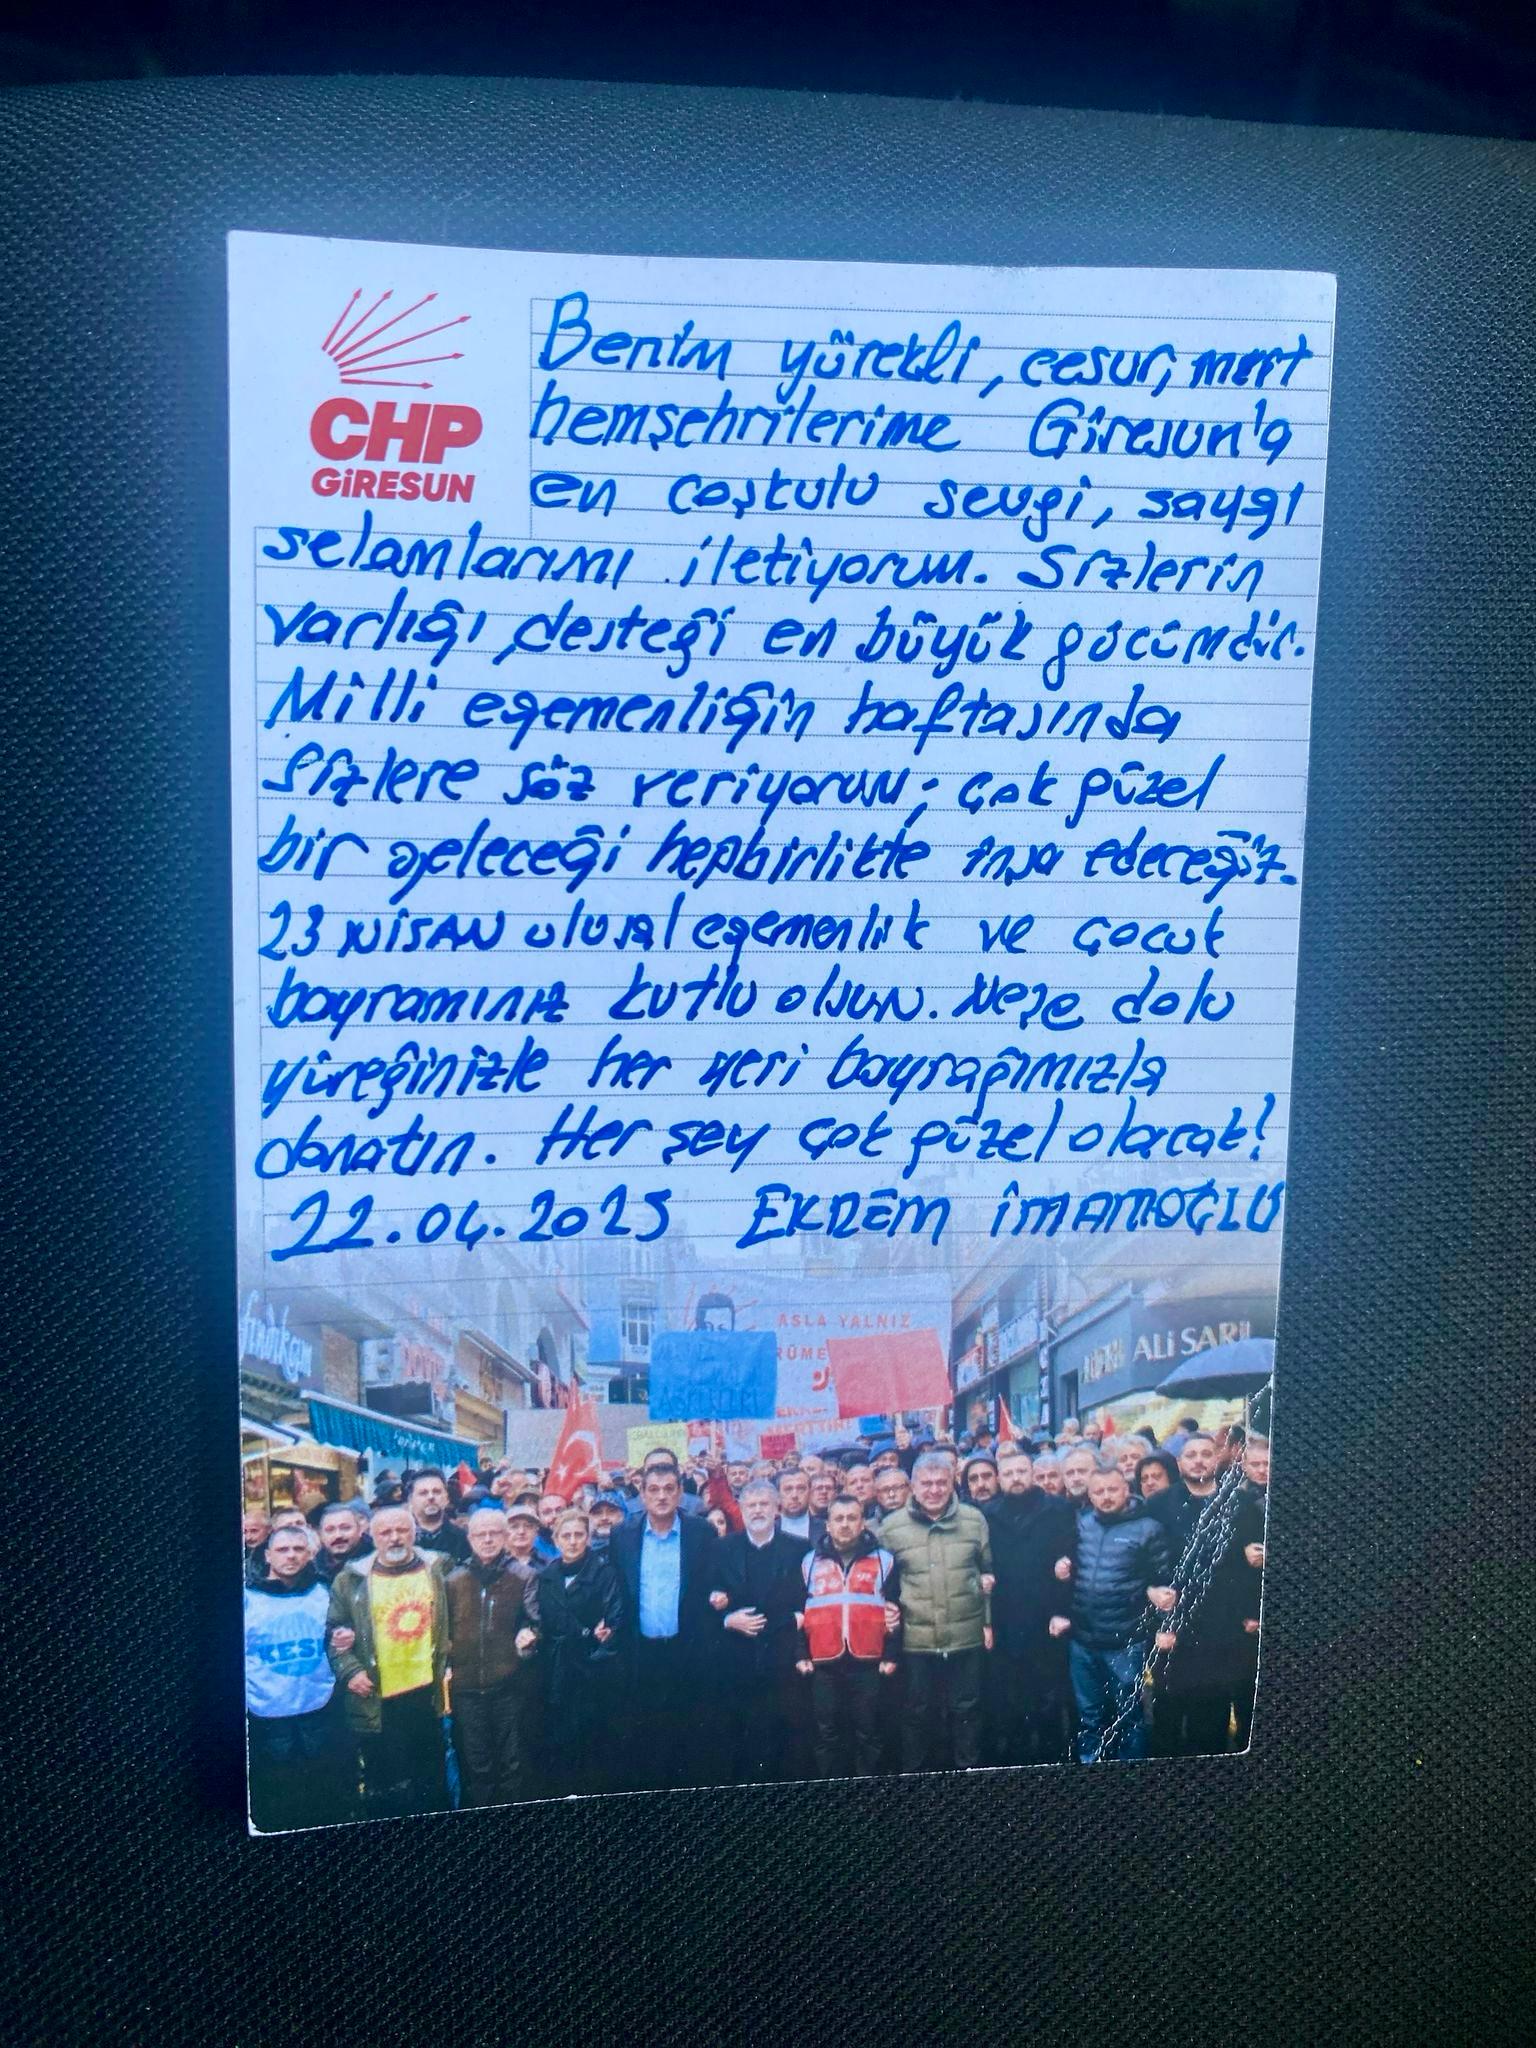 CHP
GİRESUN
Benim yürekli, cesur, mert
hemşehrilerime Giresun'a
en coşkulu sevgi, saygı
selamlarımı iletiyorum. Sizlerin
varlığı, desteği en büyük gücümdür.
Milli egemenliğin haftasında
sizlere söz veriyorum; çok güzel
bir geleceği hepbirlikte inşa edeceğiz.
23 NİSAN ulusal egemenlik ve çocuk
bayramınız kutlu olsun. Neşe dolu
yüreğinizle her yeri bayrağımızla
donatın. Her şey çok güzel olacak!
22.04.2025 EKREM İMAMOĞLU
ASLA YALNIZ
ALİ SARI
KES